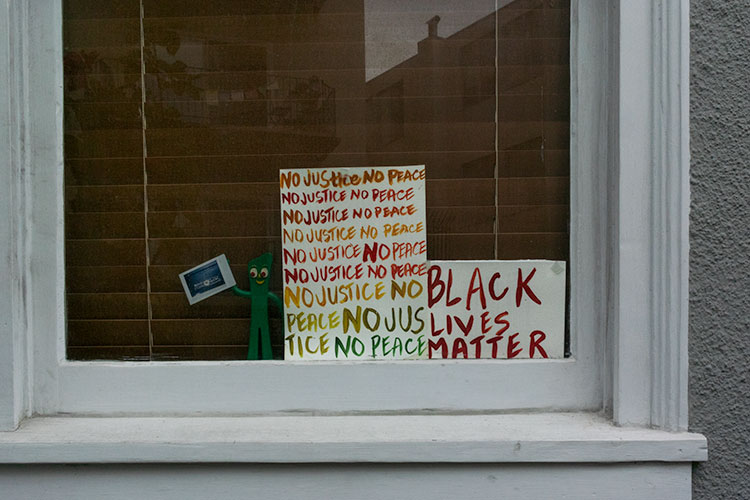 NO JUSTICE NO PEACE
NO JUSTICE NO PEACE
NO JUSTICE NO PEACE
NO JUSTICE NO PEACE
NO JUSTICE NO PEACE
NO JUSTICE NO PEACE
NO JUSTICE NO
PEACE NO JUS
TICE NO PEACE
BLACK
LIVES
MATTER